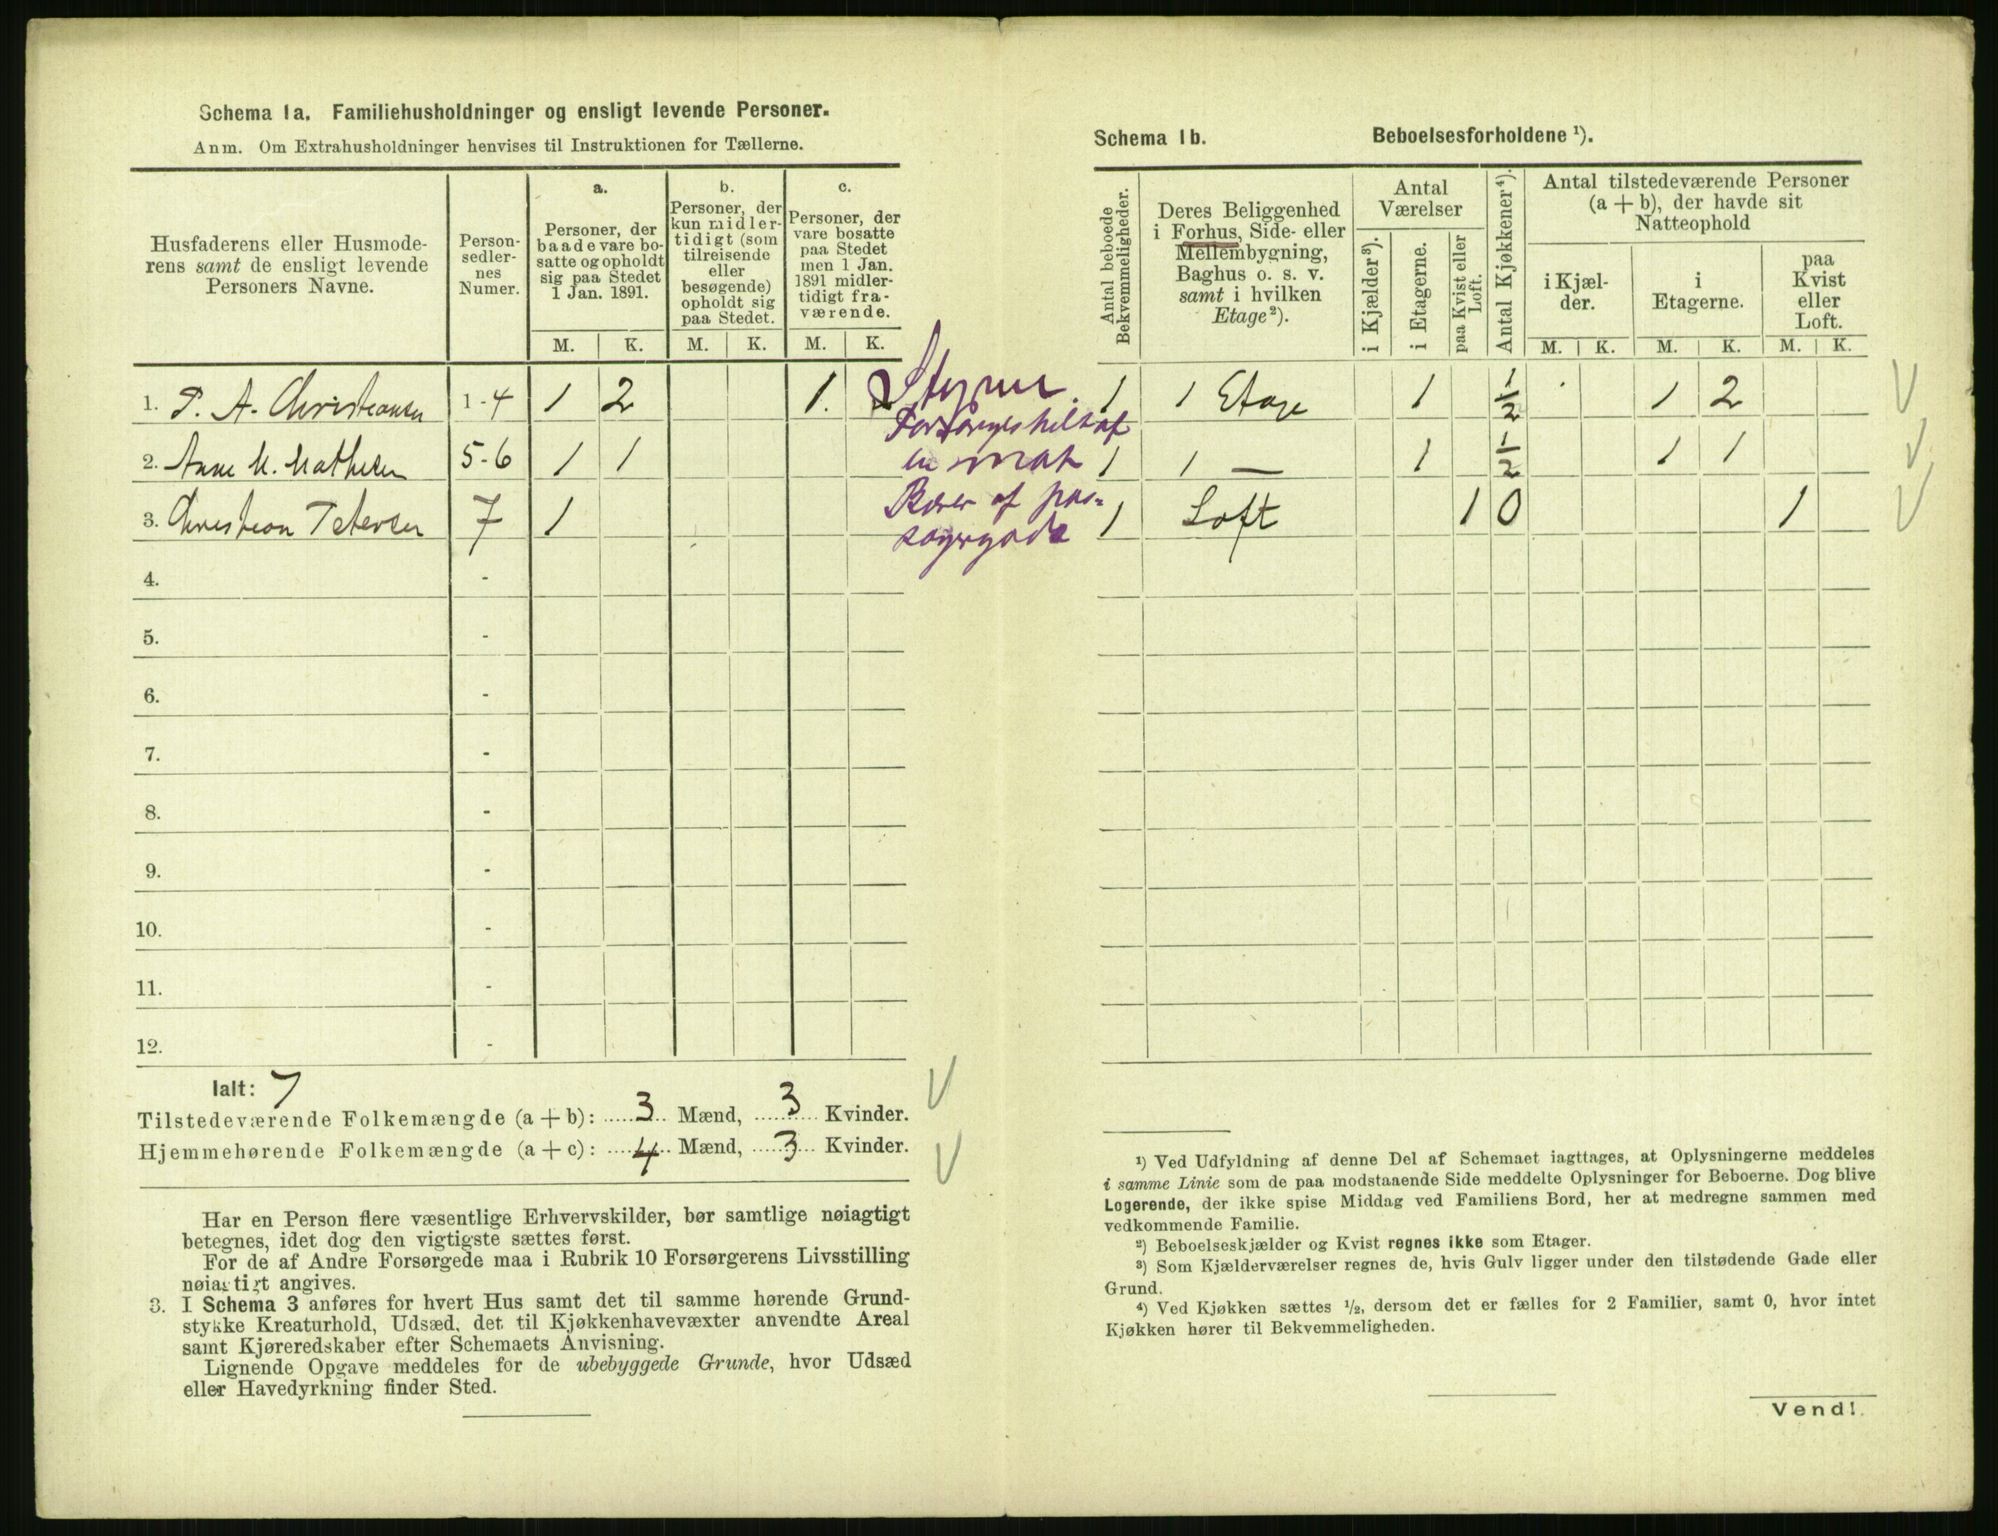 Schema 1a. Familiehusholdninger og ensligt levende Personer.
Anm. Om Extrahusholdninger henvises til Instruktionen for Tællerne.
Husfaderens eller Husmode-
rens samt de ensligt levende
Personers Navne.
Person-
sedler-
nes
Numer.
a.
Personer, der
baade vare bo-
satte og opholdt
sig paa Stedet
1 Jan. 1891.
b.
Personer, der
kun midler-
tidigt (som
tilreisende
eller
besøgende)
opholdt sig
paa Stedet.
c.
Personer, der
vare bosatte
paa Stedet
men 1 Jan.
1891 midler-
tidigt fra-
værende.
M. K. M. K. M. K.
1. P. A. Christiansen 1-4 1 2 1.
2. Anne M. Mathesen 5-6 1 1
3. Christian Petersen 7 1
4. -
5. -
6. -
7. -
8. -
9. -
10. -
11. -
12. -
Ialt: 7
Tilstedeværende Folkemængde (a + b): 3 Mænd, 3 Kvinder.
Hjemmehørende Folkemængde (a + c): 4 Mænd, 3 Kvinder.
Har en Person flere væsentlige Erhvervskilder, bør samtlige nøiagtigt
betegnes, idet dog den vigtigste sættes først.
For de af Andre Forsørgede maa i Rubrik 10 Forsørgerens Livsstilling
nøiagtigt angives.
3. I Schema 3 anføres for hvert Hus samt det til samme hørende Grund-
stykke Kreaturhold, Udsæd, det til Kjøkkenhavevæxter anvendte Areal
samt Kjøreredskaber efter Schemaets Anvisning.
Lignende Opgave meddeles for de ubebyggede Grunde, hvor Udsæd
eller Havedyrkning finder Sted.
Styrm.
Forsørges helt af
en mat
Bærer af pas-
sagergods
Schema 1b. Beboelsesforholdene ¹).
Antal beboede
Bekvemmeligheder.
Deres Beliggenhed
i Forhus, Side- eller
Mellembygning,
Baghus o. s. v.
samt i hvilken
Etage ²).
Antal
Værelser
i Kjælder ³).
i Etagerne.
paa Kvist eller
Loft.
Antal Kjøkkener ⁴).
Antal tilstedeværende Personer
(a + b), der havde sit
Natteophold
i Kjæl-
der.
i
Etagerne.
paa
Kvist
eller
Loft.
M. K. M. K. M. K.
1 1 Etage 1 1/2 1 2
1 1 — 1 1/2 1 1
1 Loft 1 0 1
¹) Ved Udfyldning af denne Del af Schemaet iagttages, at Oplysningerne meddeles
i samme Linie som de paa modstaaende Side meddelte Oplysninger for Beboerne. Dog blive
Logerende, der ikke spise Middag ved Familiens Bord, her at medregne sammen med
vedkommende Familie.
²) Beboelseskjælder og Kvist regnes ikke som Etager.
³) Som Kjælderværelser regnes de, hvis Gulv ligger under den tilstødende Gade eller
Grund.
⁴) Ved Kjøkken sættes ½, dersom det er fælles for 2 Familier, samt 0, hvor intet
Kjøkken hører til Bekvemmeligheden.
Vend!